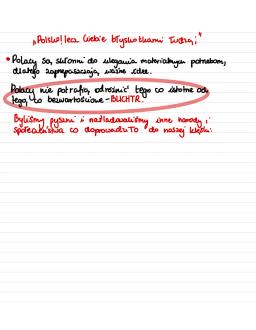 "Polsko! lecz Ciebie błyskotkami łudzą;"
• Polacy są, skłonni do ulegania materialnym potrzebom,
dlatego zaprzepaszczają, ważne idee.
Polacy nie potrafią, odróżnić tego co istotne od
tego, co bezwartościowe - BLICHTR.
Byliśmy pyszni i naśladowaliśmy inne narody, i
społeczeństwa co doprowadziło do naszej klęski.